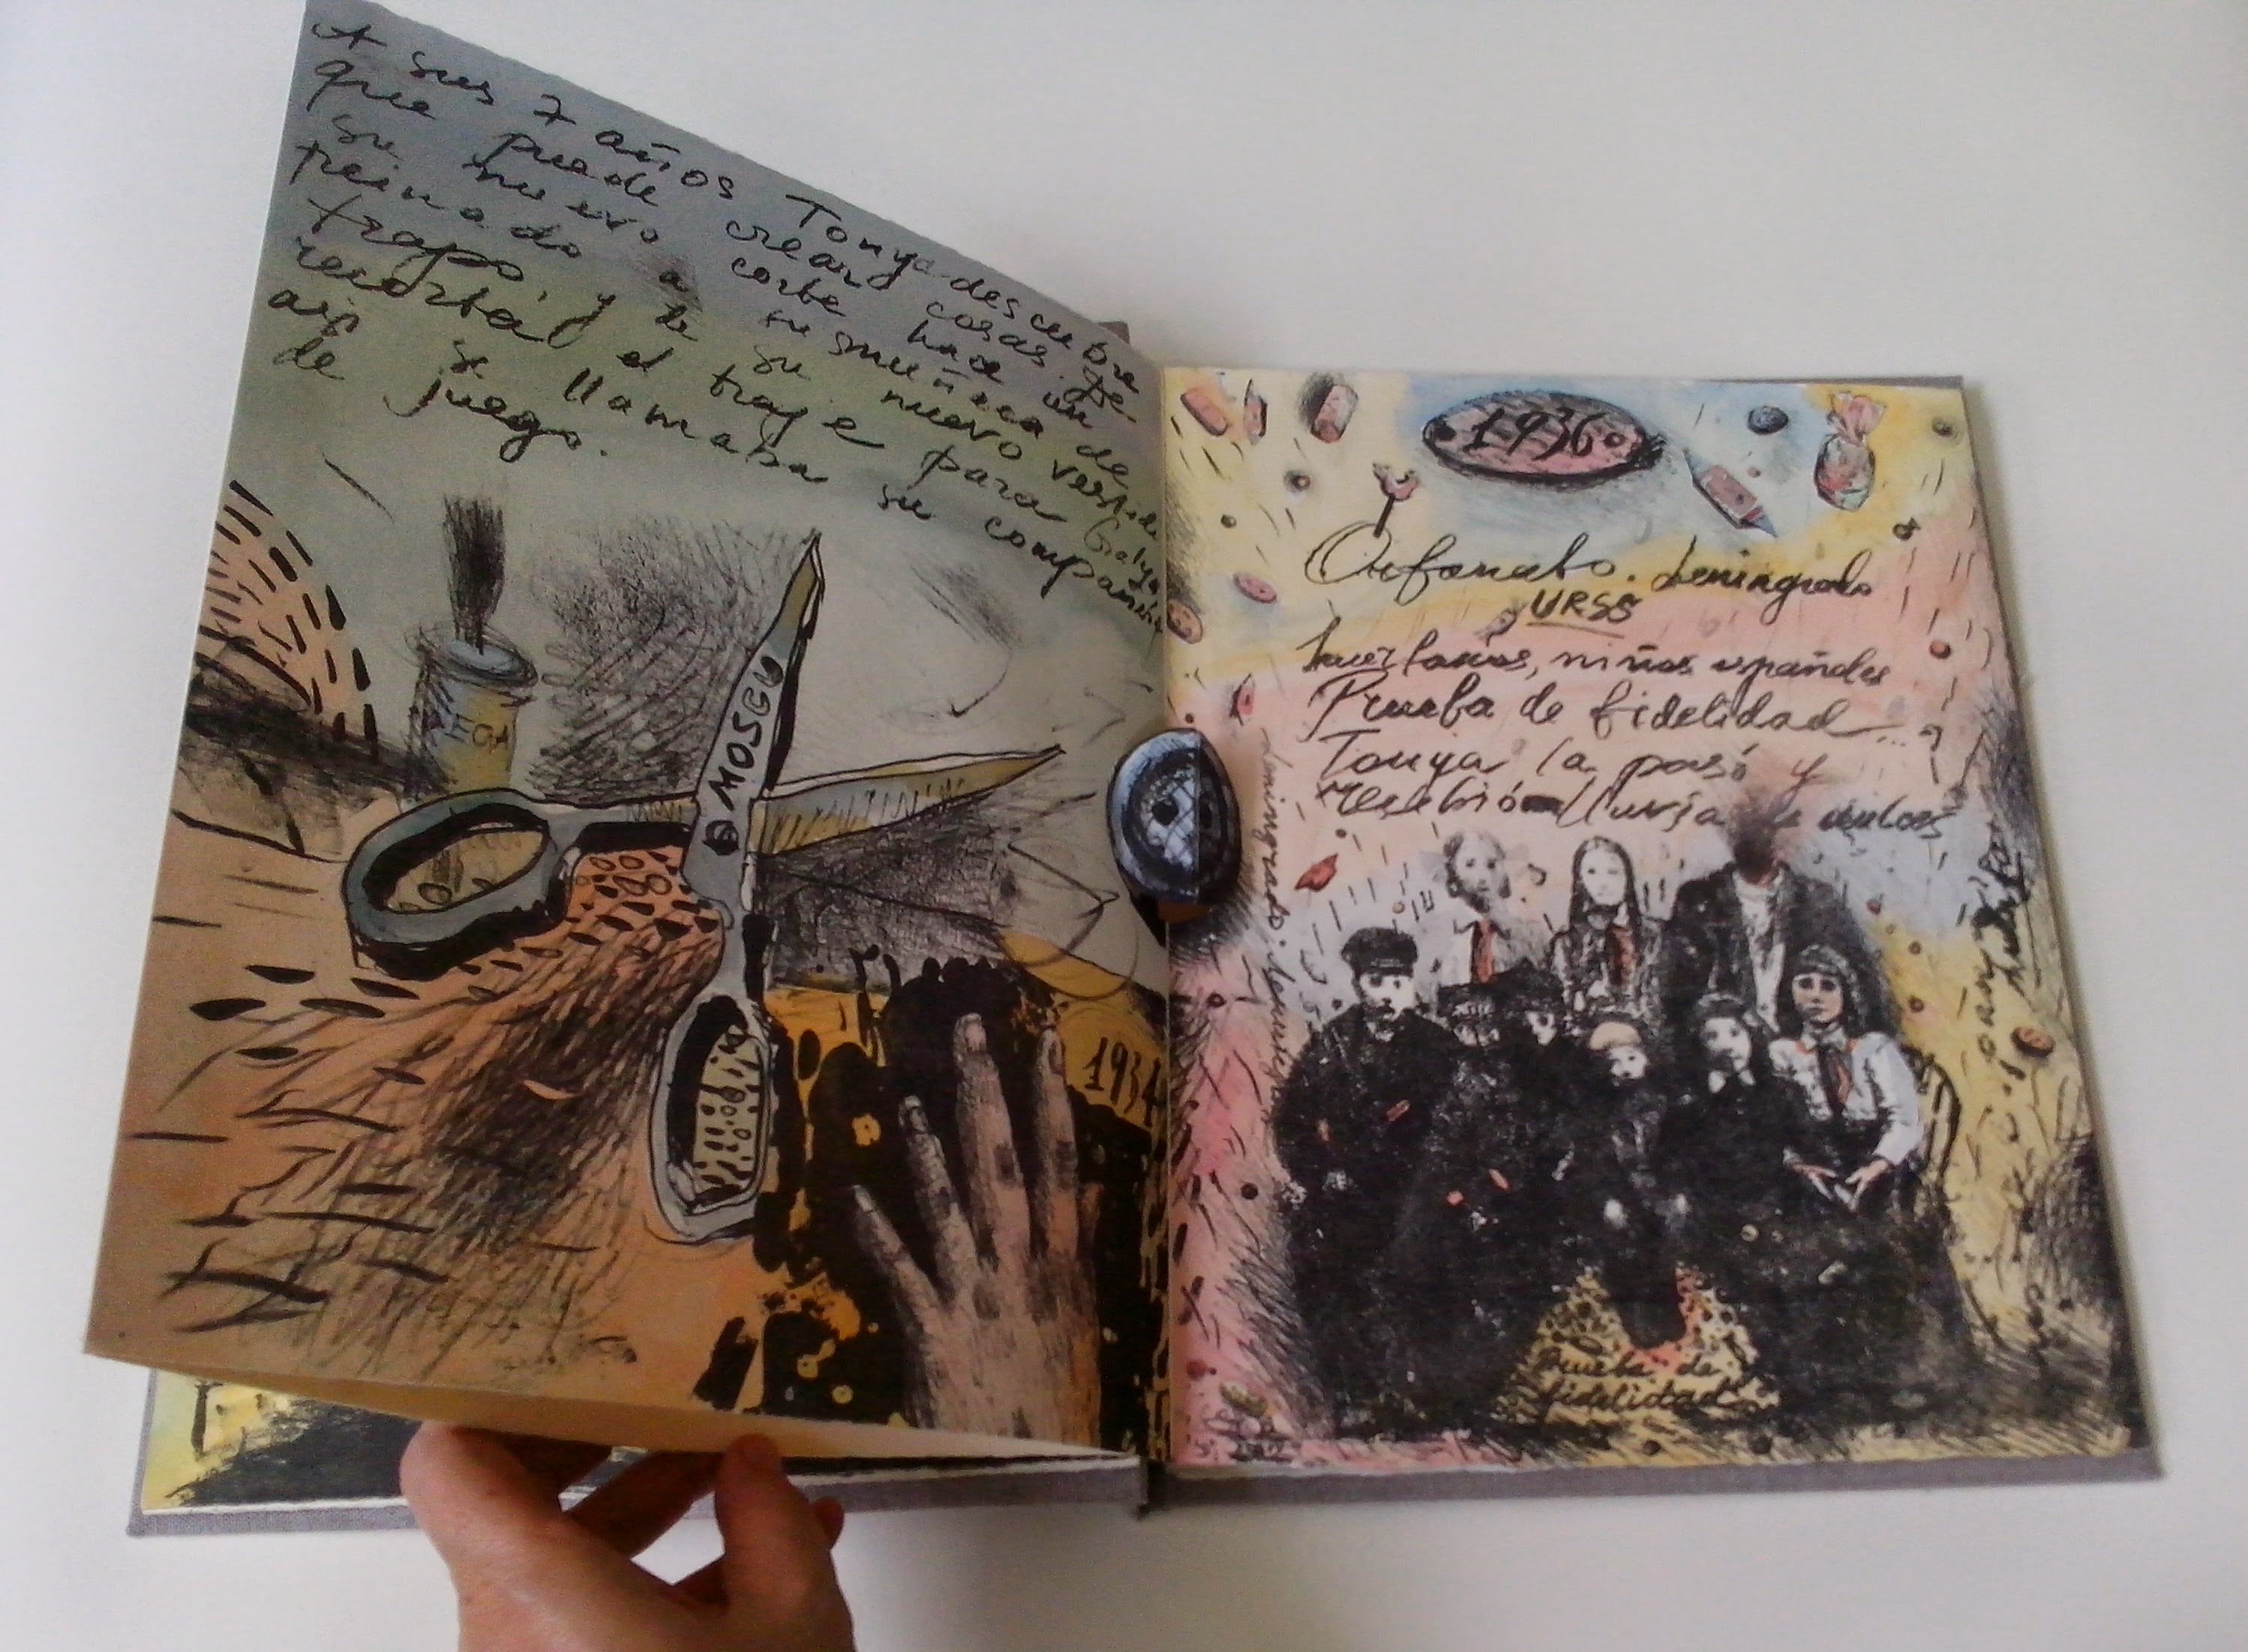 A sus 7 años Tonya descubre
que puede crear cosas. Le
su nuevo corte hace un
peinado a su muñeca de
trapo, y le su nuevo vestido
recorta el traje para Galya,
así se llamaba su compañera
de juego.
PEGA
MOSCU
1934
1936
Orfanato. Leningrado
URSS
huerfanos, niños españoles
Prueba de fidelidad...
Tonya la pasó y
recibió lluvia de dulces
Leningrado.
Prueba de
fidelidad